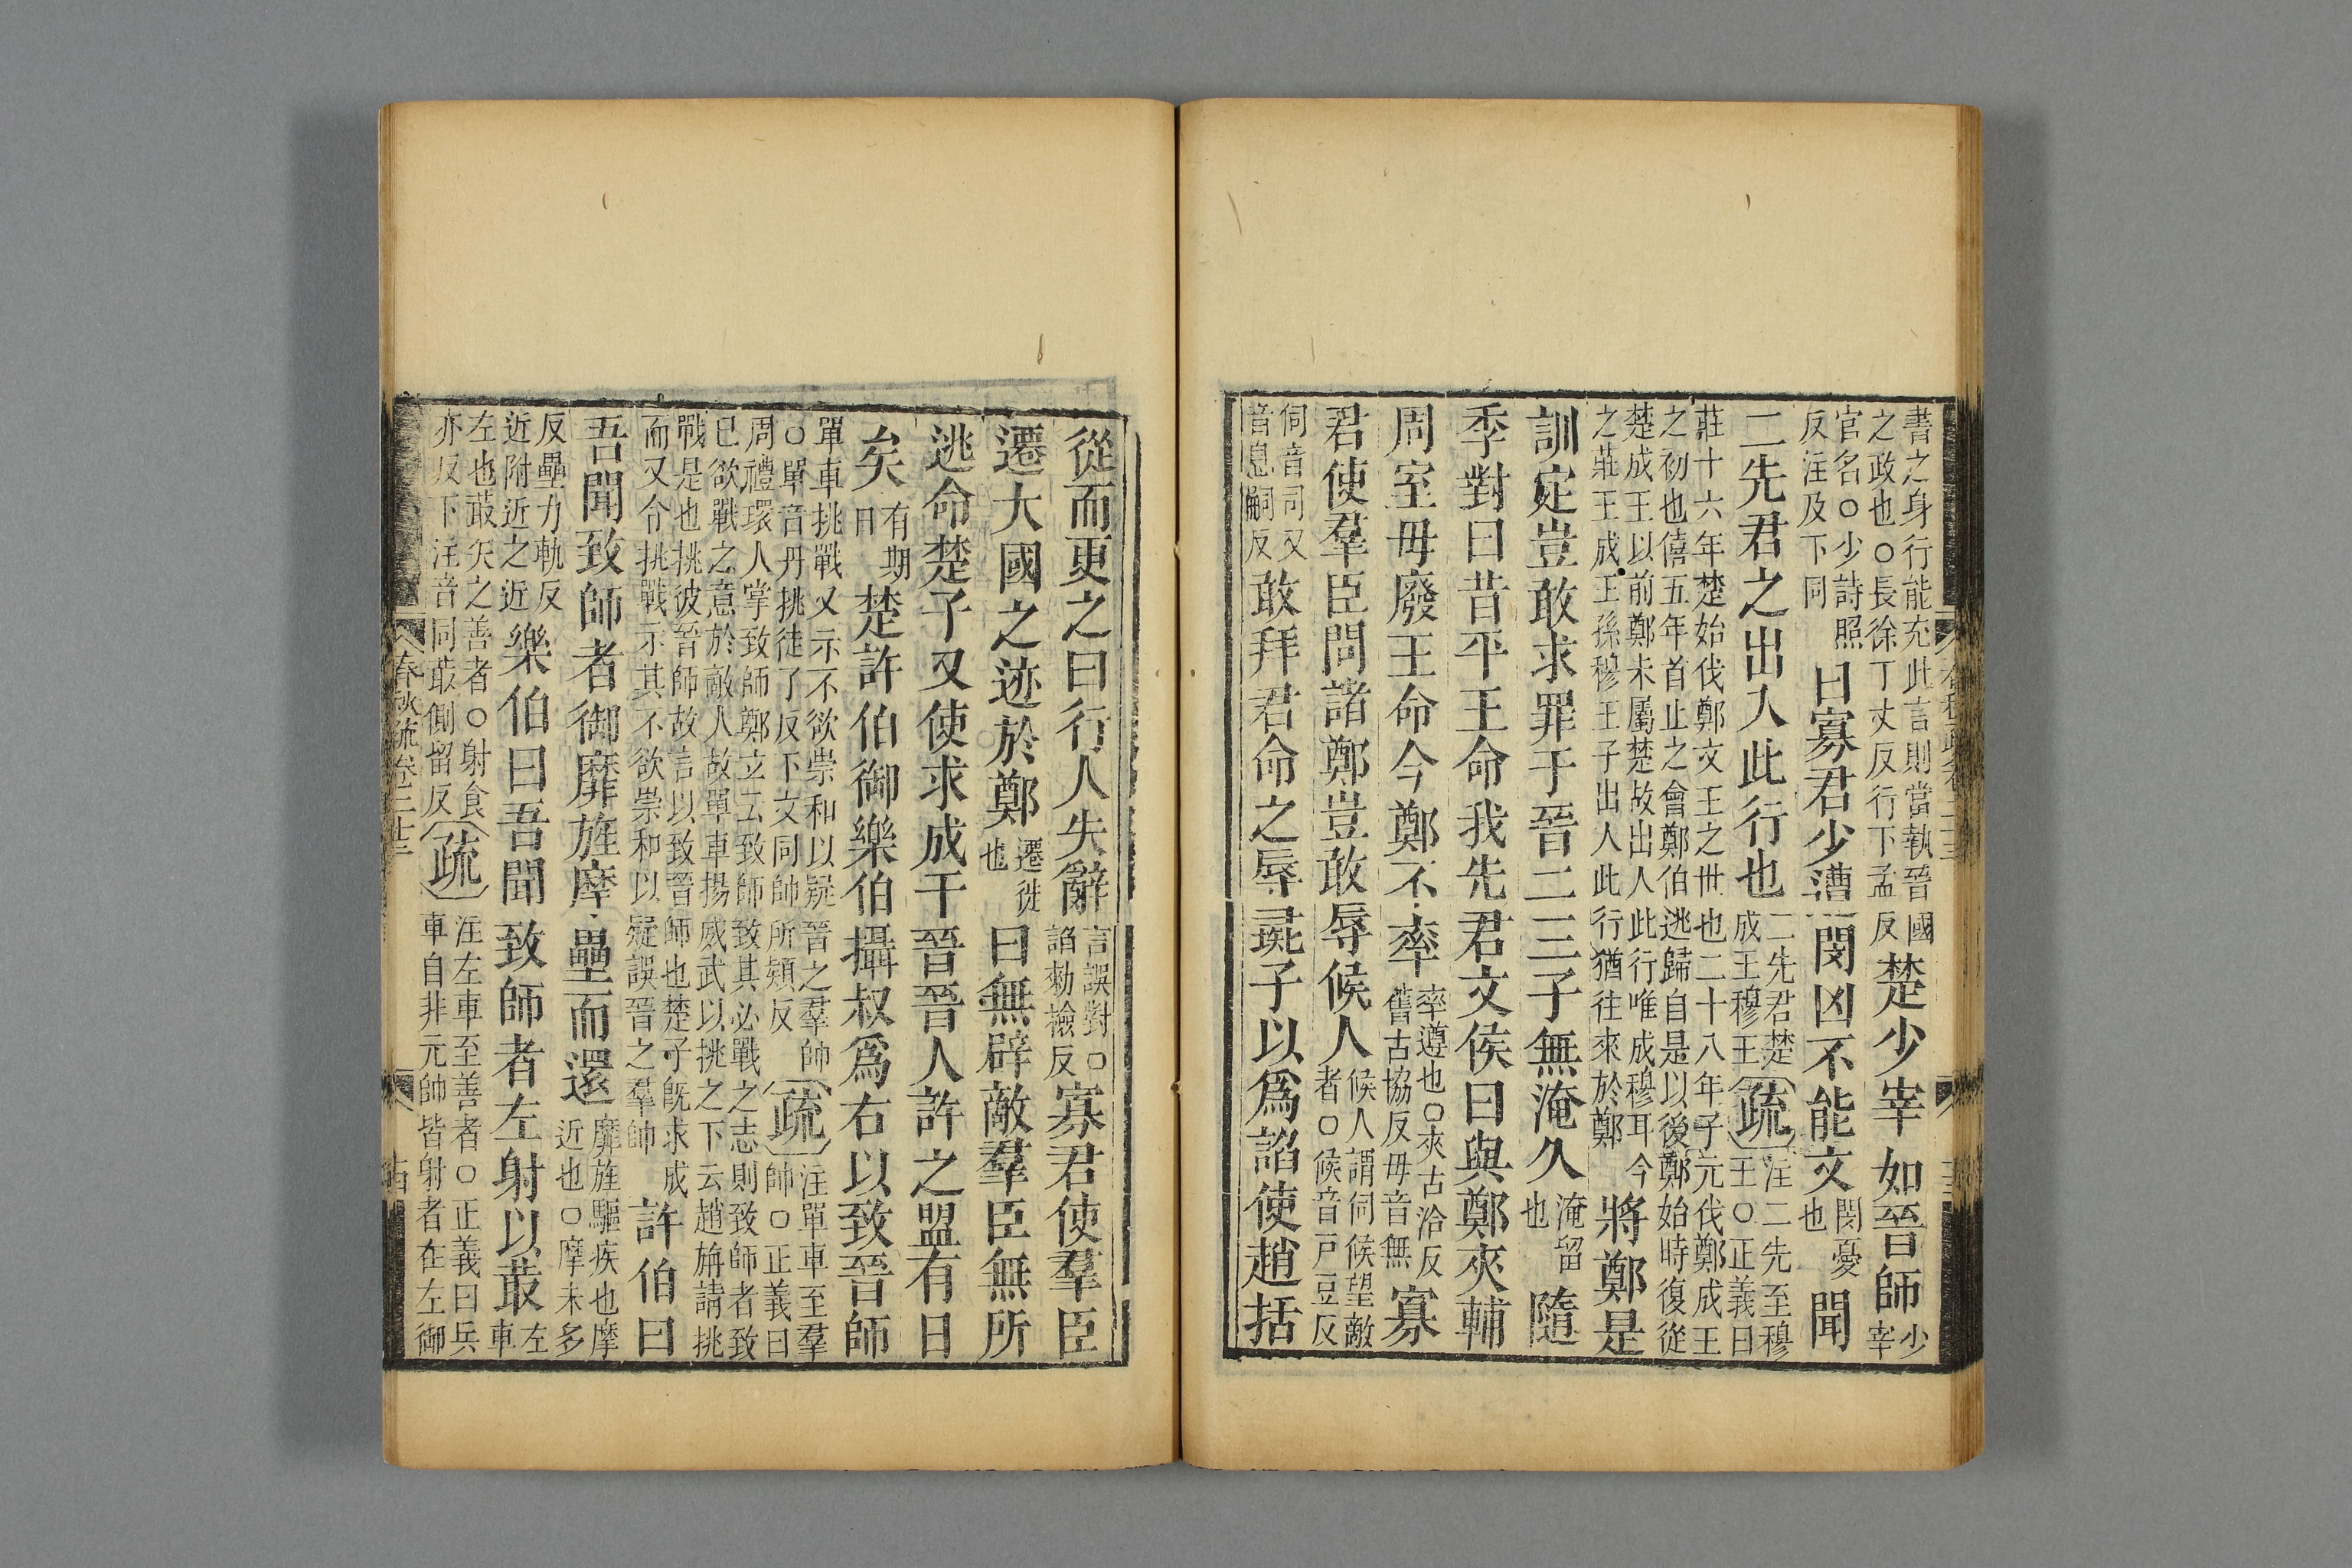 書之身行能充此言則當執晉國
之政也○長徐丁丈反行下孟反
楚少宰如晉師
少宰
官名○少詩照
反注及下同
曰寡君少遭閔凶不能文
閔憂
也
聞
二先君之出入此行也
二先君楚
成王穆王
疏
注二先至穆
王○正義曰
莊十六年楚始伐鄭文王之世也二十八年子元伐鄭成王
之初也僖五年首止之會鄭伯逃歸自是以後鄭始時復從
楚成王以前鄭未屬楚故出人此行唯成穆耳今
之莊王成王孫穆王子出人此行猶往來於鄭
將鄭是
訓定豈敢求罪于晉二三子無淹久
淹留
也
隨
季對曰昔平王命我先君文侯曰與鄭夾輔
周室毋廢王命今鄭不率
率遵也○夾古洽反
舊古協反毋音無
寡
君使羣臣問諸鄭豈敢辱候人
候人謂伺候望敵
者○候音戸豆反
伺音司又
音息嗣反
敢拜君命之辱彘子以爲諂使趙括
從而更之曰行人失辭
言誤對○
諂勑檢反
寡君使羣臣
遷大國之迹於鄭
遷徙
也
曰無辟敵羣臣無所
逃命楚子又使求成于晉晉人許之盟有日
矣
有期
日
楚許伯御樂伯攝叔爲右以致晉師
單車挑戰又示不欲崇和以疑晉之羣帥
○單音丹挑徒了反下文同帥所類反
疏
注單車至羣
帥○正義曰
周禮環人掌致師鄭立云致師致其必戰之志則致師者致
已欲戰之意於敵人故單車揚威武以挑之下云趙旃請挑
戰是也挑彼晉師故言以致晉師也楚子旣求成
而又令挑戰示其不欲崇和以疑誤晉之羣帥
許伯曰
吾聞致師者御靡旌摩壘而還
靡旌驅疾也摩
近也○摩末多
反壘力軌反
近附近之近
樂伯曰吾聞致師者左射以菆
左
車
左也菆矢之善者○射食
亦反下注音同菆側留反
疏
注左車至善者○正義曰兵
車自非元帥皆射者在左御
春秋疏卷二十三